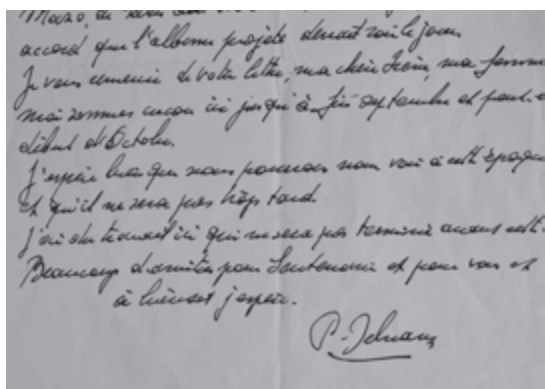 accord que l'album projeté devrait voir le jour.
Je vous remercie de votre lettre, ma chère Irène, ma femme
moi sommes encore ici jusqu'à fin septembre et peut-
début d'Octobre.
J'espère bien que nous pourrons nous voir à cette époque
et qu'il ne sera pas trop tard.
J'ai du travail ici qui ne sera pas terminé avant cette
Beaucoup d'amitiés pour et pour vous et
à bientôt j'espère.
P.